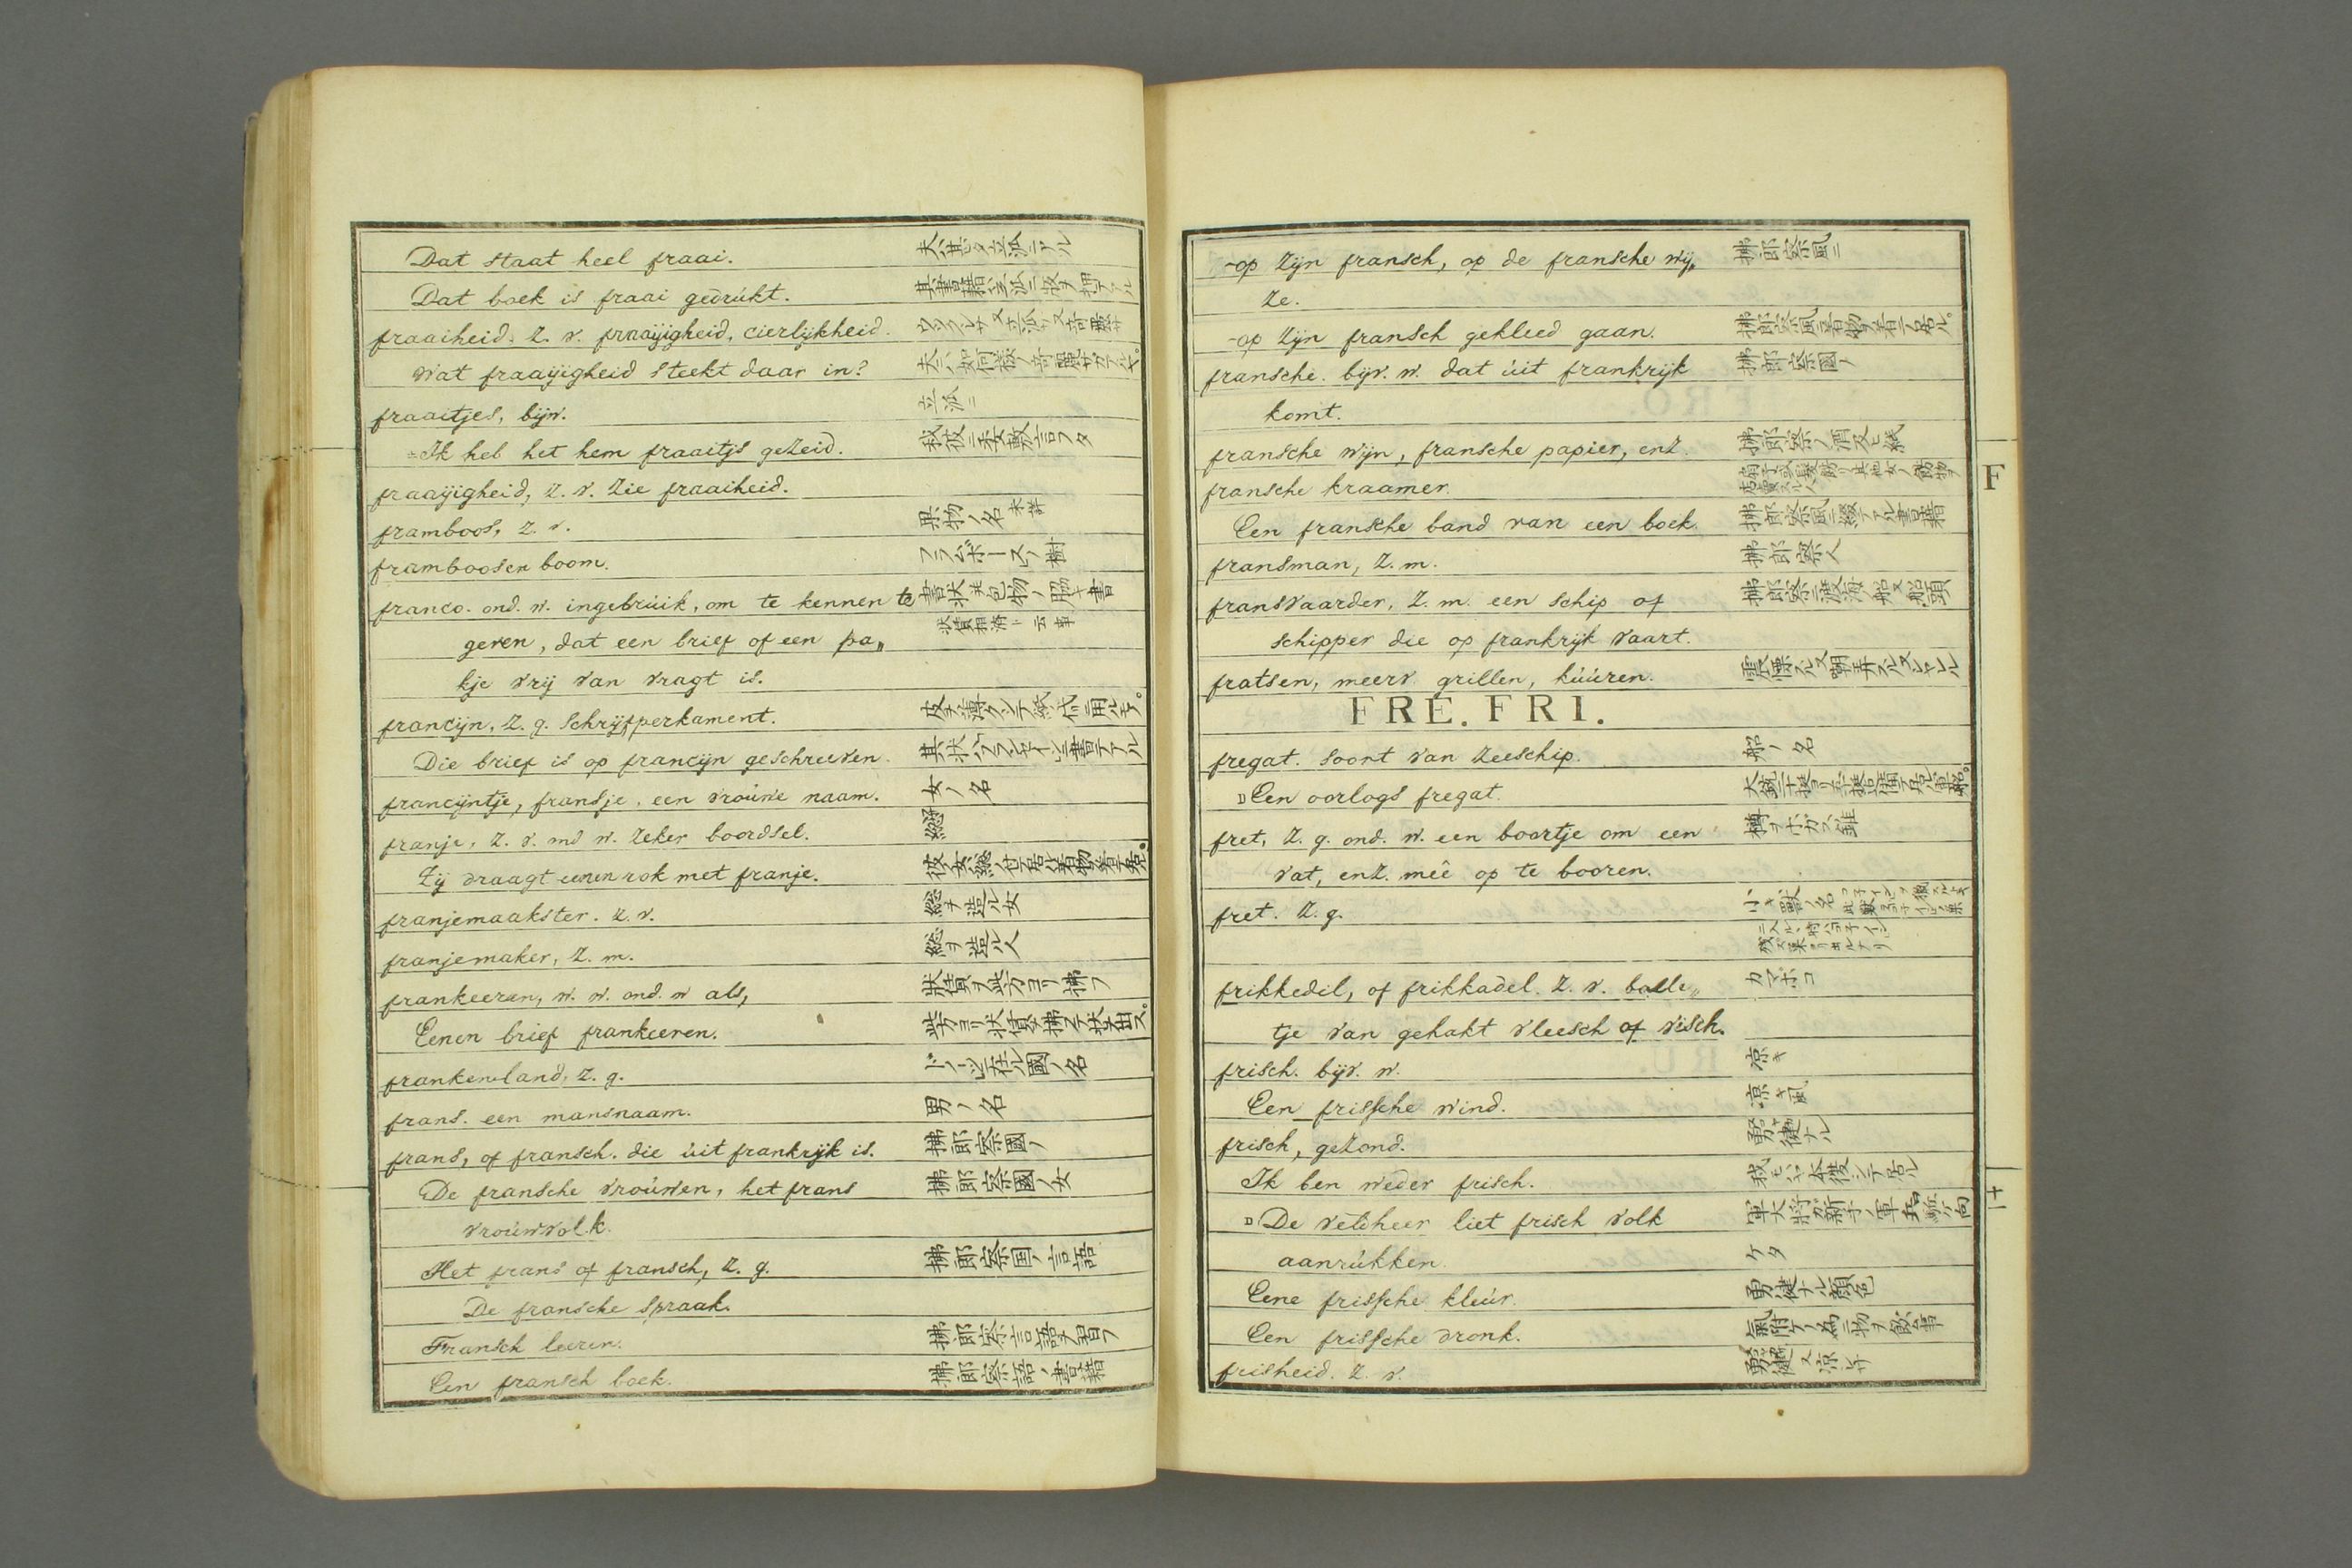 Dat staat heel fraai. 夫ハ甚タ立派ニアル
Dat boek is fraai gedrúkt. 其書籍ハ立派ニ板ヲ押テアル
fraaiheid. z. v. fraaijigheid, cierlijkheid.
Wat fraaijigheid steekt daar in?
fraaitjes, bijw. 立派ニ
Ik heb het hem fraaitjs gezeid. 我彼ニ委敷言フタ
fraaijigheid, z. v. zie fraaiheid.
framboos, z. v. 果物ノ名 未詳
framboosen boom. フラムボースノ樹
franco. ond. w. ingebrúik, om te kennen te
geven, dat een brief of een pa„ 状賃相済ト云事
kje vrij van vragt is.
francijn, z. g. schrijfperkament.
Die brief is op francijn geschreeven.
francijntje, fransje. een vroúwe naam. 女ノ名
franje, z. v. ond w. zeker boordsel. 總
Zij draagt eenen rok met franje.
franjemaakster. z. v. 總ヲ造ル女
franjemaker, z. m. 總ヲ造ル人
frankeeren, w. w. ond. w als, 狀賃ヲ此方ヨリ拂フ
Eenen brief frankeeren.
frankenland, z. g.
frans. een mansnaam. 男ノ名
frans, of fransch. die úit frankrijk is. 拂郎察國ノ
De fransche vroúwen, het frans 拂郎察國ノ女
vroúwvolk.
Het frans of fransch, z. g. 拂郎察国ノ言語
De fransche spraak.
Fransch leeren. 拂郎察ノ言語ヲ習フ
Een fransch boek. 拂郎察語ノ書籍
-op zijn fransch, op de fransche wij„ 拂郎察風ニ
ze.
-op zijn fransch gekleed gaan.
fransche. bijv. w. dat úit frankrijk 拂郎察國ノ
komt.
fransche wijn, fransche papier, enz. 拂郎察ノ酒又ヒ紙
fransche kraamer.
Een fransche band van een boek. 拂郎察風ニ綴テアル書籍
fransman, z. m. 拂郎察人
fransvaarder, z. m. een schip of
schipper die op frankrijk vaart.
fratsen, meerv grillen, kúúren.
FRE. FRI.
fregat. soort van zeeschip. 船ノ名
Een oorlogs fregat.
fret, z. g. ond. w. een boortje om een 樽ヲホガス錐
vat, enz. meê op te booren.
fret. z. g.
frikkedil, of frikkadel. z. v. balle„ カマボコ
tje van gehakt vleesch of visch.
frisch. bijv. w. 凉キ
Een frissche wind. 凉キ風
frisch, gezond. 勇健ナル
Ik ben weder frisch.
De veldheer liet frisch volk
aanrúkken. ケタ
Eene frissche kleúr. 勇健ナル顔色
Een frissche dronk. 氣附ケノ為ニ物ヲ飲ム事
frisheid. z. v.
F